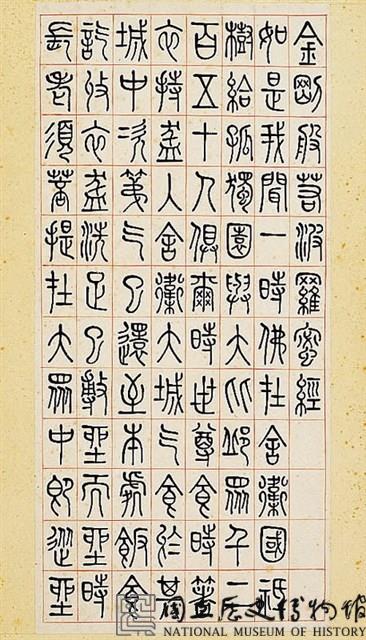 金剛般若波羅蜜經
如是我聞一時佛在舍衛國祇
樹給孤獨園與大比邱眾千二
百五十人俱爾時世尊食時著
衣持盋入舍衛大城乞食於其
城中次第乞已還至本處飯食
訖收衣盋洗足已敷坐而坐時
長老須菩提在大眾中即從坐
國立歷史博物館
NATIONAL MUSEUM OF HISTORY